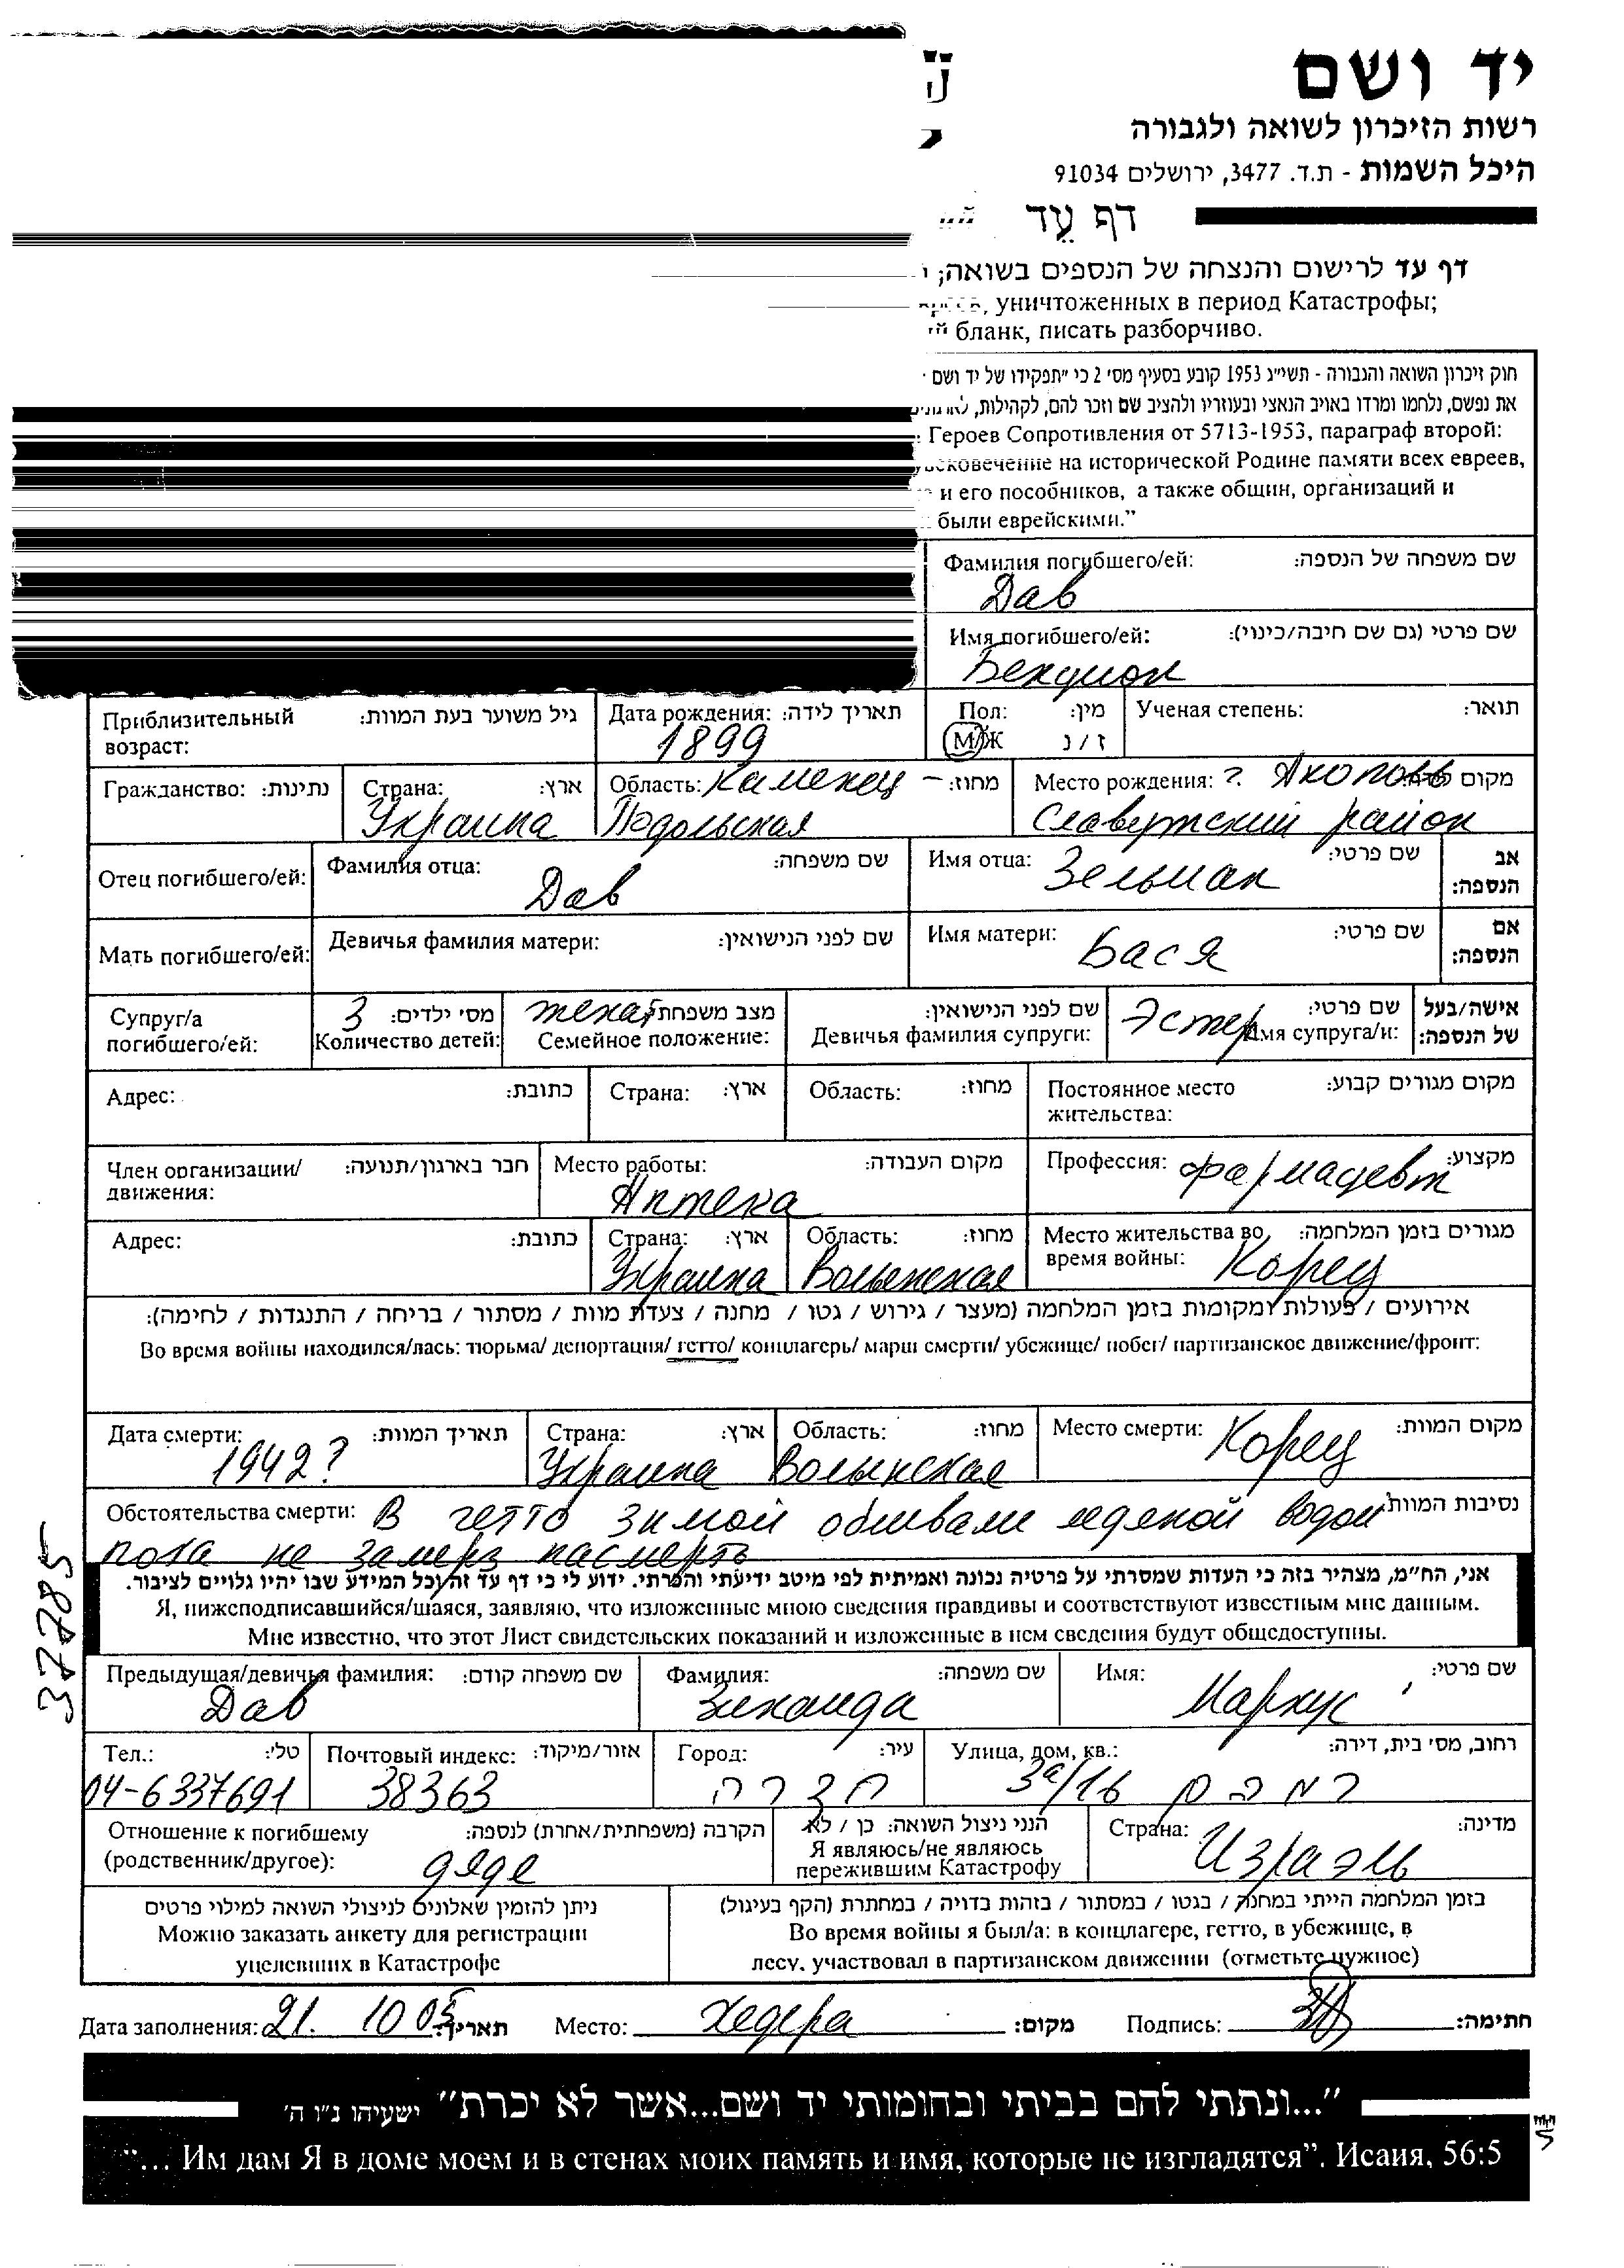 יד ושם
רשות הזיכרון לשואה ולגבורה
היכל השמות - ת.ד. 3477, ירושלים 91034
דף עֵד
דף עד לרישום והנצחה של הנספים בשואה;
уничтоженных в период Катастрофы;
бланк, писать разборчиво.
חוק זיכרון השואה והגבורה - תשי״ג 1953 קובע בסעיף מס׳ 2 כי ״תפקידו של יד ושם
את נפשם, נלחמו ומרדו באויב הנאצי ובעוזריו ולהציב שם וזכר להם, לקהילות,
Героев Сопротивления от 5713-1953, параграф второй:
на исторической Родине памяти всех евреев,
и его пособников, а также общин, организаций и
были еврейскими.”
Фамилия погибшего/ей: שם משפחה של הנספה:
Дав
Имя погибшего/ей: שם פרטי (גם שם חיבה/כינוי):
Бенцион
Приблизительный возраст: גיל משוער בעת המוות: Дата рождения: תאריך לידה: Пол: מין: Ученая степень: תואר:
1899 М/Ж ז / נ
Гражданство: נתינות: Страна: ארץ: Область: Каменец - מחוז: Место рождения: г. מקום
Украина Подольская Славутский район
Отец погибшего/ей: Фамилия отца: שם משפחה: Имя отца: Зельман שם פרטי: אב הנספה:
Дав
Мать погибшего/ей: Девичья фамилия матери: שם לפני הנישואין: Имя матери: Бася שם פרטי: אם הנספה:
Супруг/а погибшего/ей: 3 מס׳ ילדים: женат מצב משפחתי שם לפני הנישואין: Эстер שם פרטי: אישה/בעל של הנספה:
Количество детей: Семейное положение: Девичья фамилия супруги: Имя супруга/и:
Адрес: כתובת: Страна: ארץ: Область: מחוז: Постоянное место жительства: מקום מגורים קבוע:
Член организации/ движения: חבר בארגון/תנועה: Место работы: מקום העבודה: Профессия: фармацевт מקצוע:
Аптека
Адрес: כתובת: Страна: ארץ: Область: מחוז: Место жительства во время войны: מגורים בזמן המלחמה:
Украина Волынская Корец
אירועים / פעולות ומקומות בזמן המלחמה (מעצר / גירוש / גטו / מחנה / צעדת מוות / מסתור / בריחה / התנגדות / לחימה):
Во время войны находился/лась: тюрьма/ депортация/ гетто/ концлагерь/ марш смерти/ убежище/ побег/ партизанское движение/фронт:
Дата смерти: תאריך המוות: Страна: ארץ: Область: מחוז: Место смерти: Корец מקום המוות:
1942? Украина Волынская
Обстоятельства смерти: В гетто зимой обливали ледяной водой נסיבות המוות
пока не замерз насмерть
אני, הח״מ, מצהיר בזה כי העדות שמסרתי על פרטיה נכונה ואמיתית לפי מיטב ידיעתי והכרתי. ידוע לי כי דף עד זה וכל המידע שבו יהיו גלויים לציבור.
Я, нижеподписавшийся/шаяся, заявляю, что изложенные мною сведения правдивы и соответствуют известным мне данным.
Мне известно, что этот Лист свидетельских показаний и изложенные в нем сведения будут общедоступны.
Предыдущая/девичья фамилия: שם משפחה קודם: Фамилия: שם משפחה: Имя: שם פרטי:
Дав Зинаида Маркус
Тел.: טל׳: Почтовый индекс: אזור/מיקוד: Город: עיר: Улица, дом, кв.: רחוב, מס׳ בית, דירה:
04-6337691 38363 חדרה 3а/16 רמבם
Отношение к погибшему (родственник/другое): הקרבה (משפחתית/אחרת) לנספה: הנני ניצול השואה: כן / לא Страна: Израэль מדינה:
дядя Я являюсь/не являюсь пережившим Катастрофу
ניתן להזמין שאלונים לניצולי השואה למילוי פרטים בזמן המלחמה הייתי במחנה / בגטו / במסתור / בזהות בדויה / במחתרת (הקף בעיגול)
Можно заказать анкету для регистрации Во время войны я был/а: в концлагере, гетто, в убежище, в
уцелевших в Катастрофе лесу, участвовал в партизанском движении (отметьте нужное)
Дата заполнения: 21. 10 05 תאריך: Место: Хедера מקום: Подпись: חתימה:
״...ונתתי להם בביתי ובחומותי יד ושם...אשר לא יכרת״ ישעיהו נ״ו ה׳
“... Им дам Я в доме моем и в стенах моих память и имя, которые не изгладятся”. Исаия, 56:5
37785